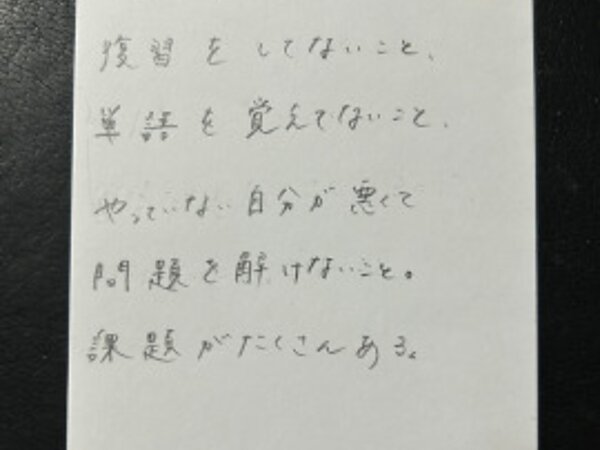 復習をしてないこと、
単語を覚えてないこと、
やっていない自分が悪くて
問題を解けないこと。
課題がたくさんある。